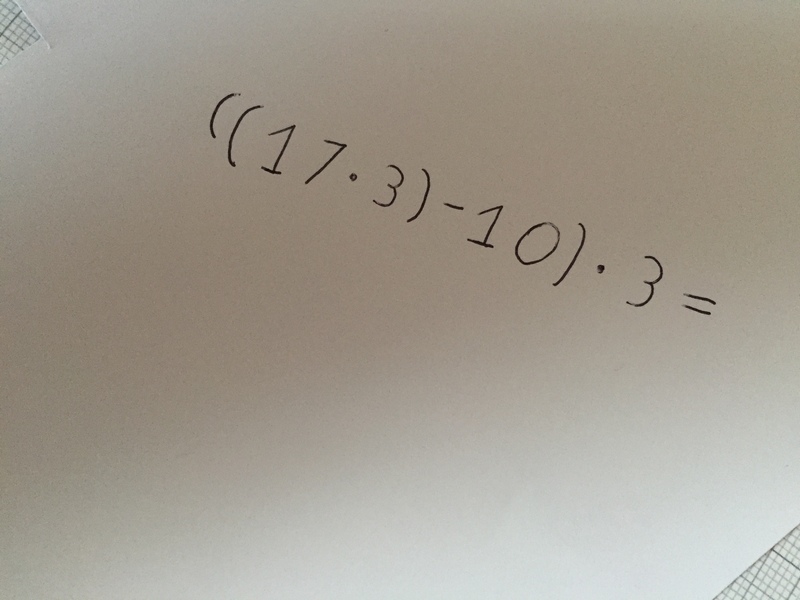 ((17·3)-10)·3=